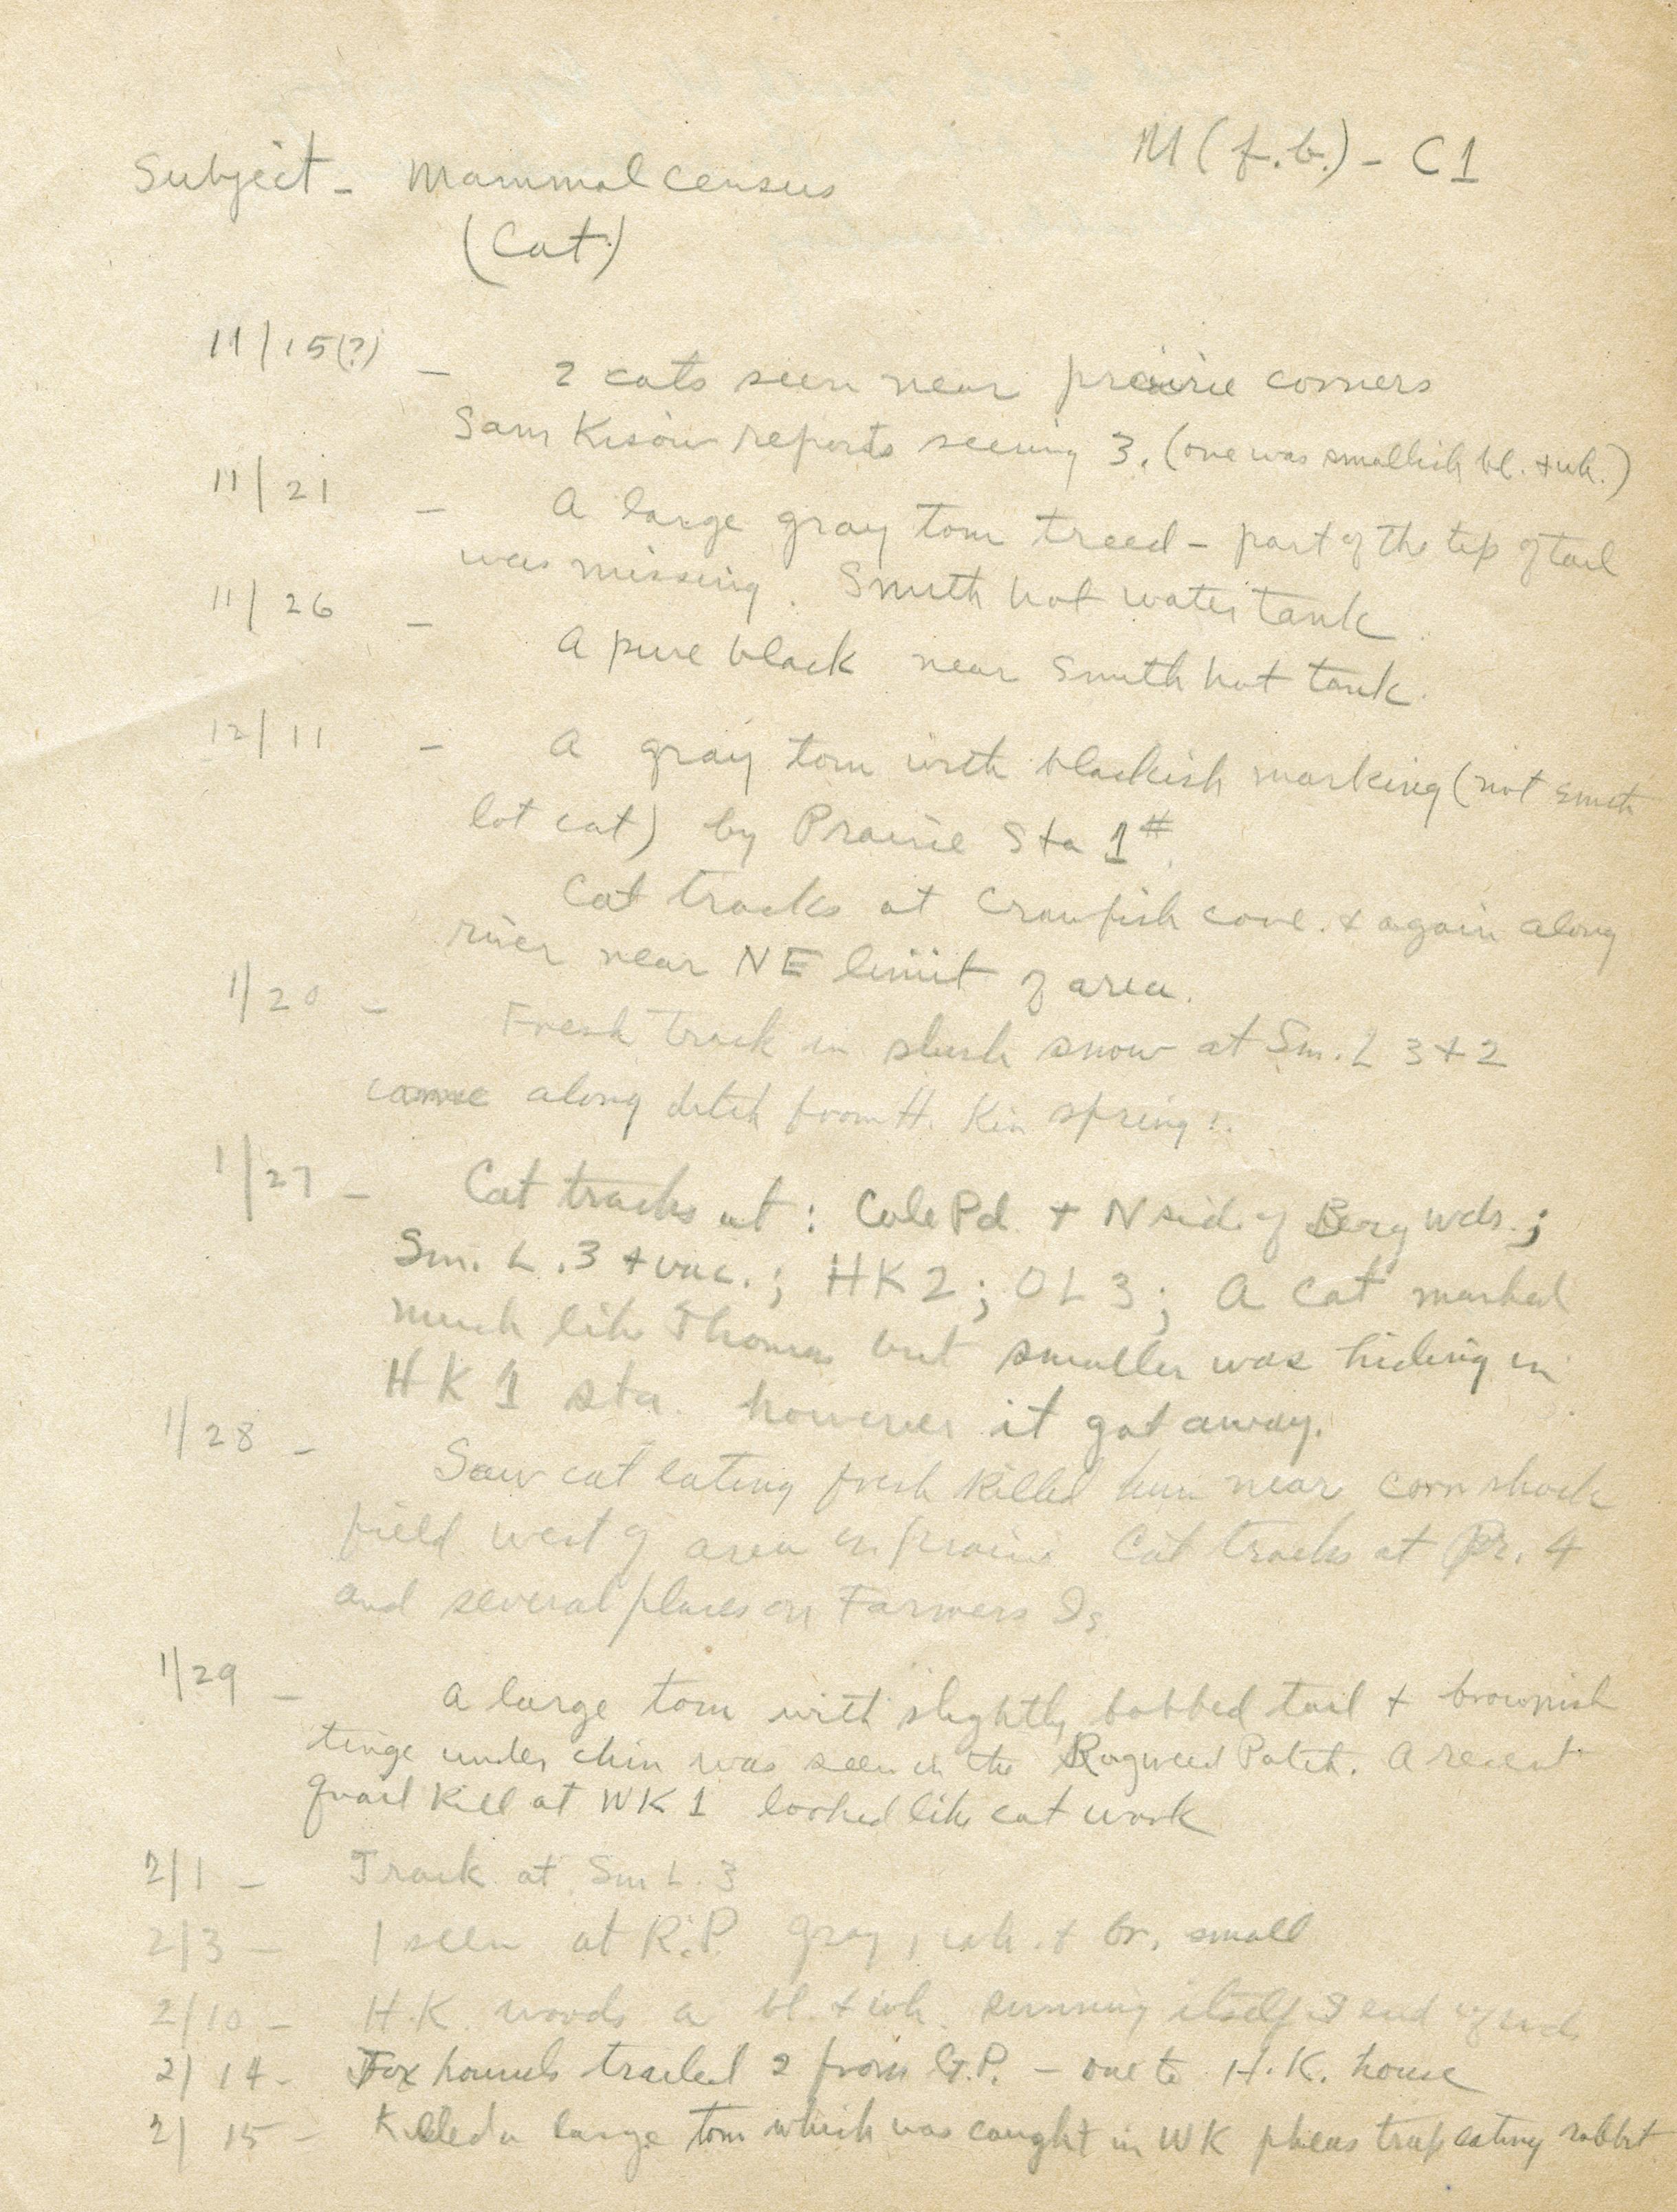 M (f.b.) - C1
Subject - Mammal census
(Cat)
11/15(?) - 2 cats seen near prairie corners
Sam Kisow reports seeing 3. (one was smallish bl. + wh.)
11/21 - A large gray tom treed - part of the tip of tail
was missing. Smith hot water tank.
11/26 - A pure black near Smith hot tank.
12/11 - A gray tom with blackish marking (not Smith
lot cat) by Prairie Sta 1#.
Cat tracks at Crawfish cove. & again along
river near NE limit of area.
1/20 - Fresh track in slush snow at Sm. L 3 + 2
came along ditch from H. Kin spring.
1/27 - Cat tracks at: Cole Pd. + N side of Berg wds.;
Sm. L. 3 + vac.; HK 2; OL 3; A cat marked
much like Thomas but smaller was hiding in
HK 1 sta. however it got away.
1/28 - Saw cat eating fresh killed hun near corn shock
field west of area on prairie Cat tracks at Pr. 4
and several places on Farmers Is
1/29 - A large tom with slightly bobbed tail + brownish
tinge under chin was seen in the Ragweed Patch. A recent
quail kill at WK 1 looked like cat work
2/1 - Track at Sm L. 3
2/3 - 1 seen at R.P. gray, wh. + br. small
2/10 - H.K. woods a bl. + wh. sunning itself S end of wds
2/14 - Fox hounds trailed 2 from G.P. - one to H.K. house
2/15 - Killed a large tom which was caught in WK pheas trap eating rabbit